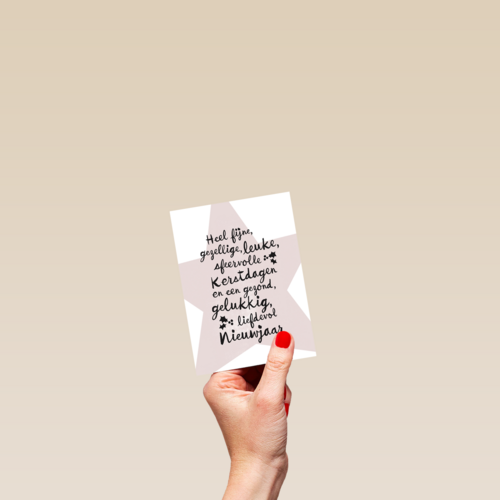 Heel fijne,
gezellige, leuke,
sfeervolle
Kerstdagen
en een gezond,
gelukkig,
liefdevol
Nieuwjaar